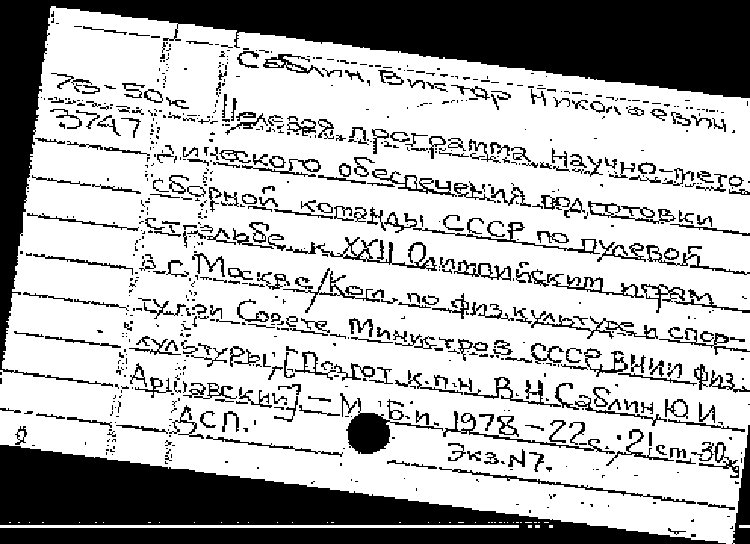 Саблин, Виктор Николаевич.
78-50к
3747
Целевая программа научно-мето-
дического обеспечения подготовки
сборной команды СССР по пулевой
стрельбе к XXII Олимпийским играм
в г. Москве / Ком. по физ. культуре и спор-
ту при Совете Министров СССР, ВНИИ физ.
культуры; [Подгот. к.п.н. В.Н. Саблин, Ю.И.
Аршавский]. — М.: Б.и., 1978. - 22 с.; 21 см. - 30 эк
ДСП.
Экз. N7.